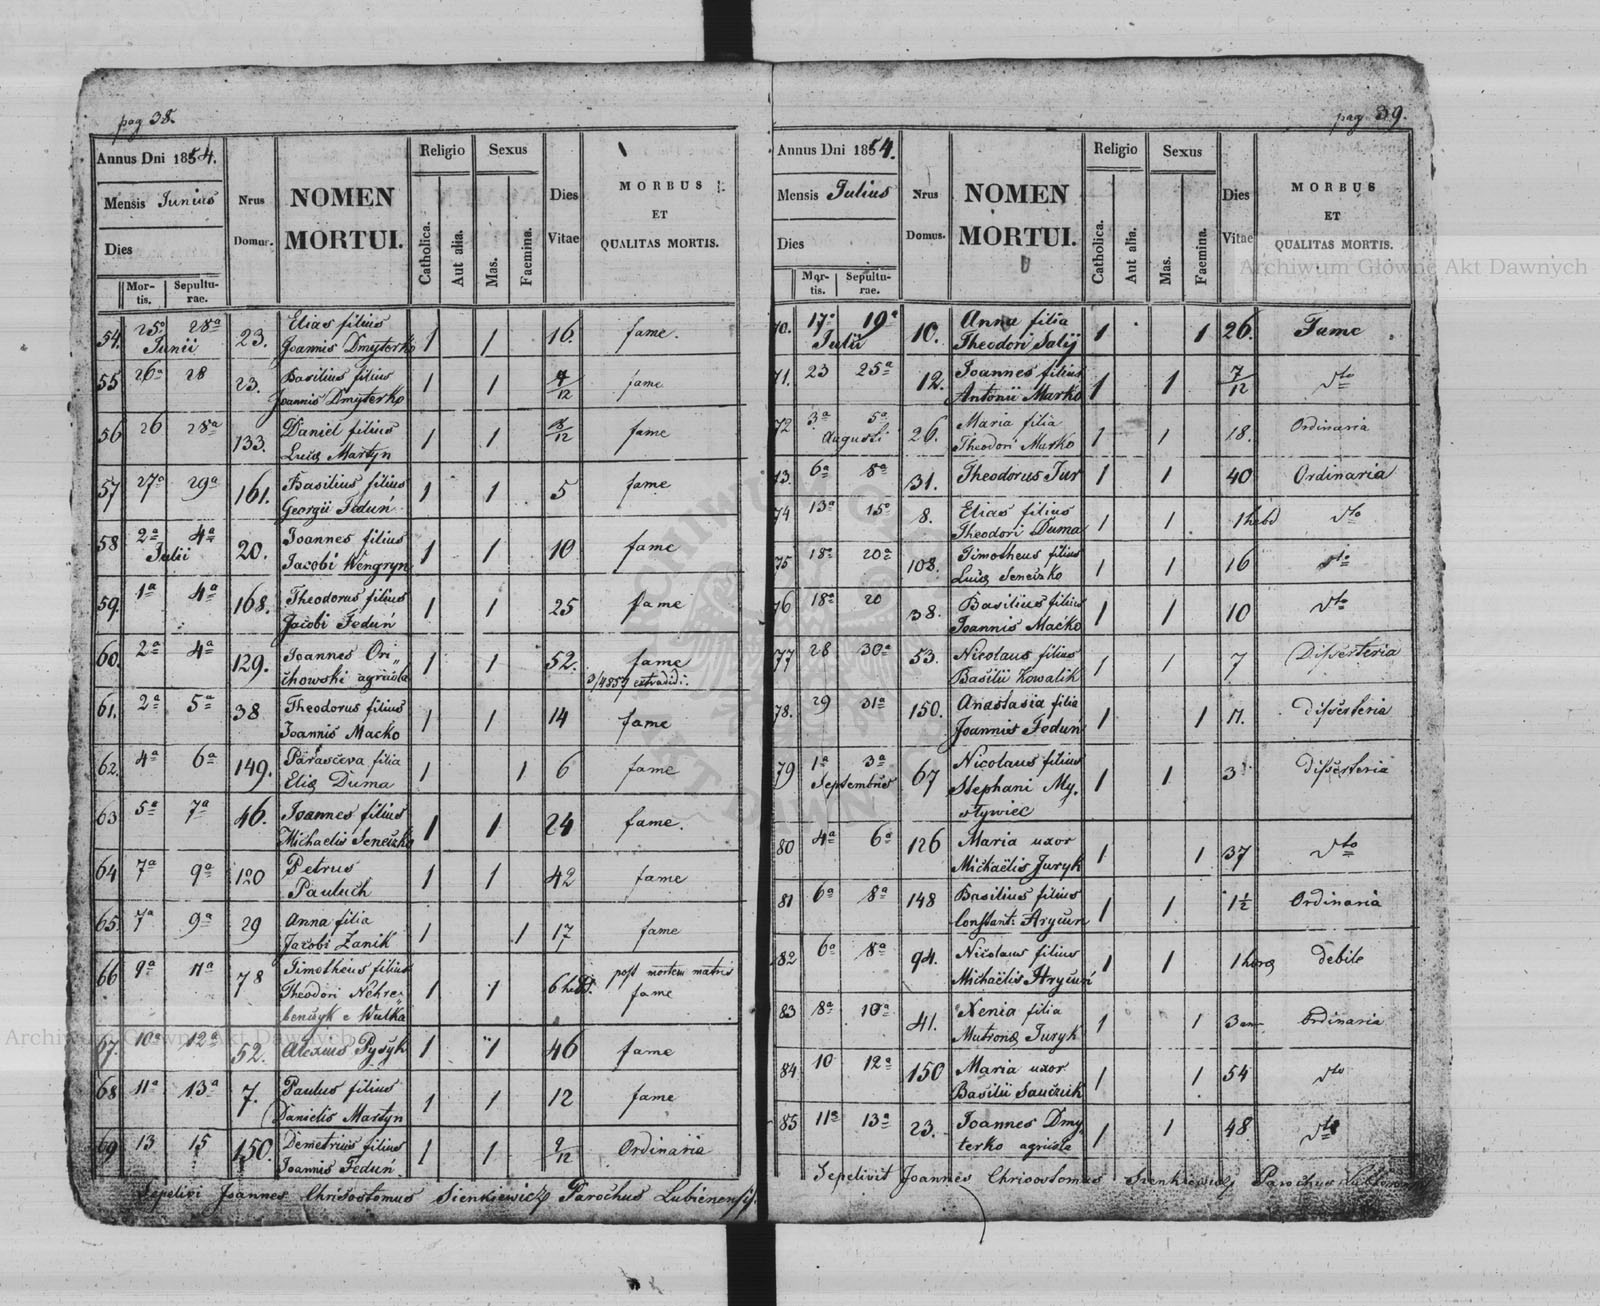 pag 38.
Annus Dni 1854.
Mensis Junius
Dies
Mortis. Sepulturae.
Nrus Domus.
NOMEN MORTUI.
Religio
Catholica. Aut alia.
Sexus
Mas. Faemina.
Dies Vitae
MORBUS
ET
QUALITAS MORTIS.
54. 25a 28a 23. Elias filius 1 1 16. fame.
Junii Joannis Dmyterko
55 26a 28 23. Basilius filius 1 1 7/12 fame
Joannis Dmyterko
56 26 28a 133. Daniel filius 1 1 8/12 fame
Lucae Martyn
57 27a 29a 161. Basilius filius 1 1 5 fame
Georgii Feduń
58 2a 4a 20. Joannes filius 1 1 10 fame
Julii Jacobi Wengryn
59. 1a 4a 168. Theodorus filius 1 1 25 fame
Jacobi Feduń
60. 2a 4a 129. Joannes Ori„ 1 1 52. fame
chowski agricola extradidi.
61. 2a 5a 38 Theodorus filius 1 1 14 fame
Joannis Macko
62. 4a 6a 149. Parasceva filia 1 1 6 fame
Eliae Duma
63 5a 7a 46. Joannes filius 1 1 24 fame.
Michaelis Senczko
64 7a 9a 120 Petrus 1 1 42 fame
Pauluch
65. 7a 9a 29 Anna filia 1 1 17 fame
Jacobi Zanik
66 9a 11a 78 Timotheus filius 1 1 6 hebd. post mortem matris
Theodori Nehre„ fame
benczyk e Wulka
67. 10a 12a 52. Alexius Pyszyk 1 1 46 fame
68 11a 13a 7. Paulus filius 1 1 12 fame
Danielis Martyn
69 13 15 150. Demetrius filius 1 1 9/12 Ordinaria
Joannis Feduń
Sepelivi Joannes Chrisostomus Sienkiewicz Parochus Lubienensis
pag 39.
Annus Dni 1854.
Mensis Julius
Dies
Mortis. Sepulturae.
Nrus Domus.
NOMEN MORTUI.
Religio
Catholica. Aut alia.
Sexus
Mas. Faemina.
Dies Vitae
MORBUS
ET
QUALITAS MORTIS.
70. 17a 19a 10. Anna filia 1 1 26. Fame
Julii Theodori Salij
71. 23 25a 12. Joannes filius 1 1 7/12 dto
Antonii Marko
72 3a 5a 26. Maria filia 1 1 18. Ordinaria
Augusti Theodori Marko
73. 6a 8a 31. Theodorus Jur 1 1 40 Ordinaria
74 13a 15a 8. Elias filius 1 1 1 hebd dto
Theodori Duma
75 18a 20a 108. Timotheus filius 1 1 16 dto
Lucae Senczko
76 18a 20 38. Basilius filius 1 1 10 dto
Joannis Macko
77 28 30a 53. Nicolaus filius 1 1 7 Disserteria
Basilii Kowalik
78. 29 31a 150. Anastasia filia 1 1 11. disserteria
Joannis Fedun
79 1a 3a 67 Nicolaus filius 1 1 3 disserteria
Septembris Stephani My„
stywiec
80 4a 6a 126 Maria uxor 1 1 37 dto
Michaelis Juryk
81 6a 8a 148 Basilius filius 1 1 1½ Ordinaria
Constant: Hrycun
82 6a 8a 94. Nicolaus filius 1 1 1 hora debile
Michaelis Hrycun
83 8a 10a 41. Xenia filia 1 1 3 an Ordinaria
Matronae Juryk
84 10 12a 150 Maria uxor 1 1 54 dto
Basilii Sawczuk
85 11a 13a 23. Joannes Dmy„ 1 1 48. dto
terko agricola
Sepelivit Joannes Chrisostomus Sienkiewicz Parochus
Archiwum Główne Akt Dawnych
Archiwum Główne Akt Dawnych